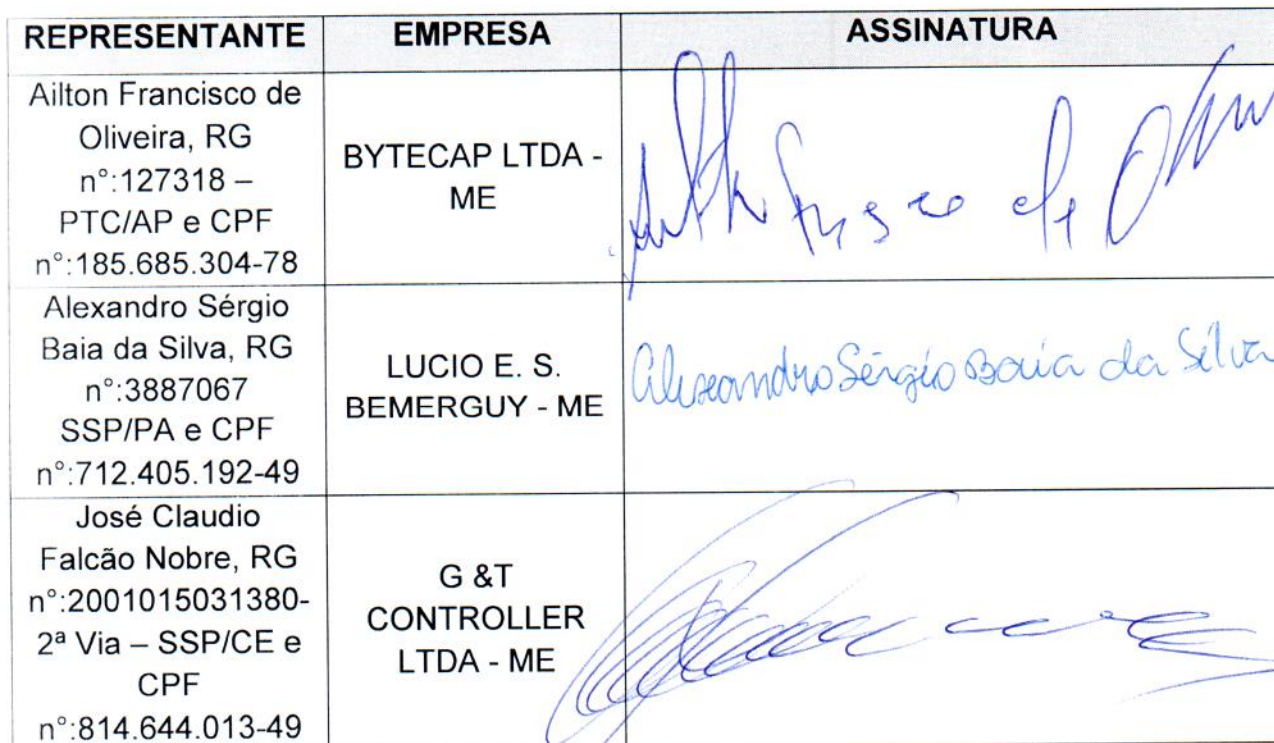 REPRESENTANTE EMPRESA ASSINATURA
Ailton Francisco de
Oliveira, RG
n°:127318 –
PTC/AP e CPF
n°:185.685.304-78
BYTECAP LTDA -
ME
Alexandro Sérgio
Baia da Silva, RG
n°:3887067
SSP/PA e CPF
n°:712.405.192-49
LUCIO E. S.
BEMERGUY - ME
Alexandro Sérgio Baia da Silva
José Claudio
Falcão Nobre, RG
n°:2001015031380-
2ª Via – SSP/CE e
CPF
n°:814.644.013-49
G &T
CONTROLLER
LTDA - ME